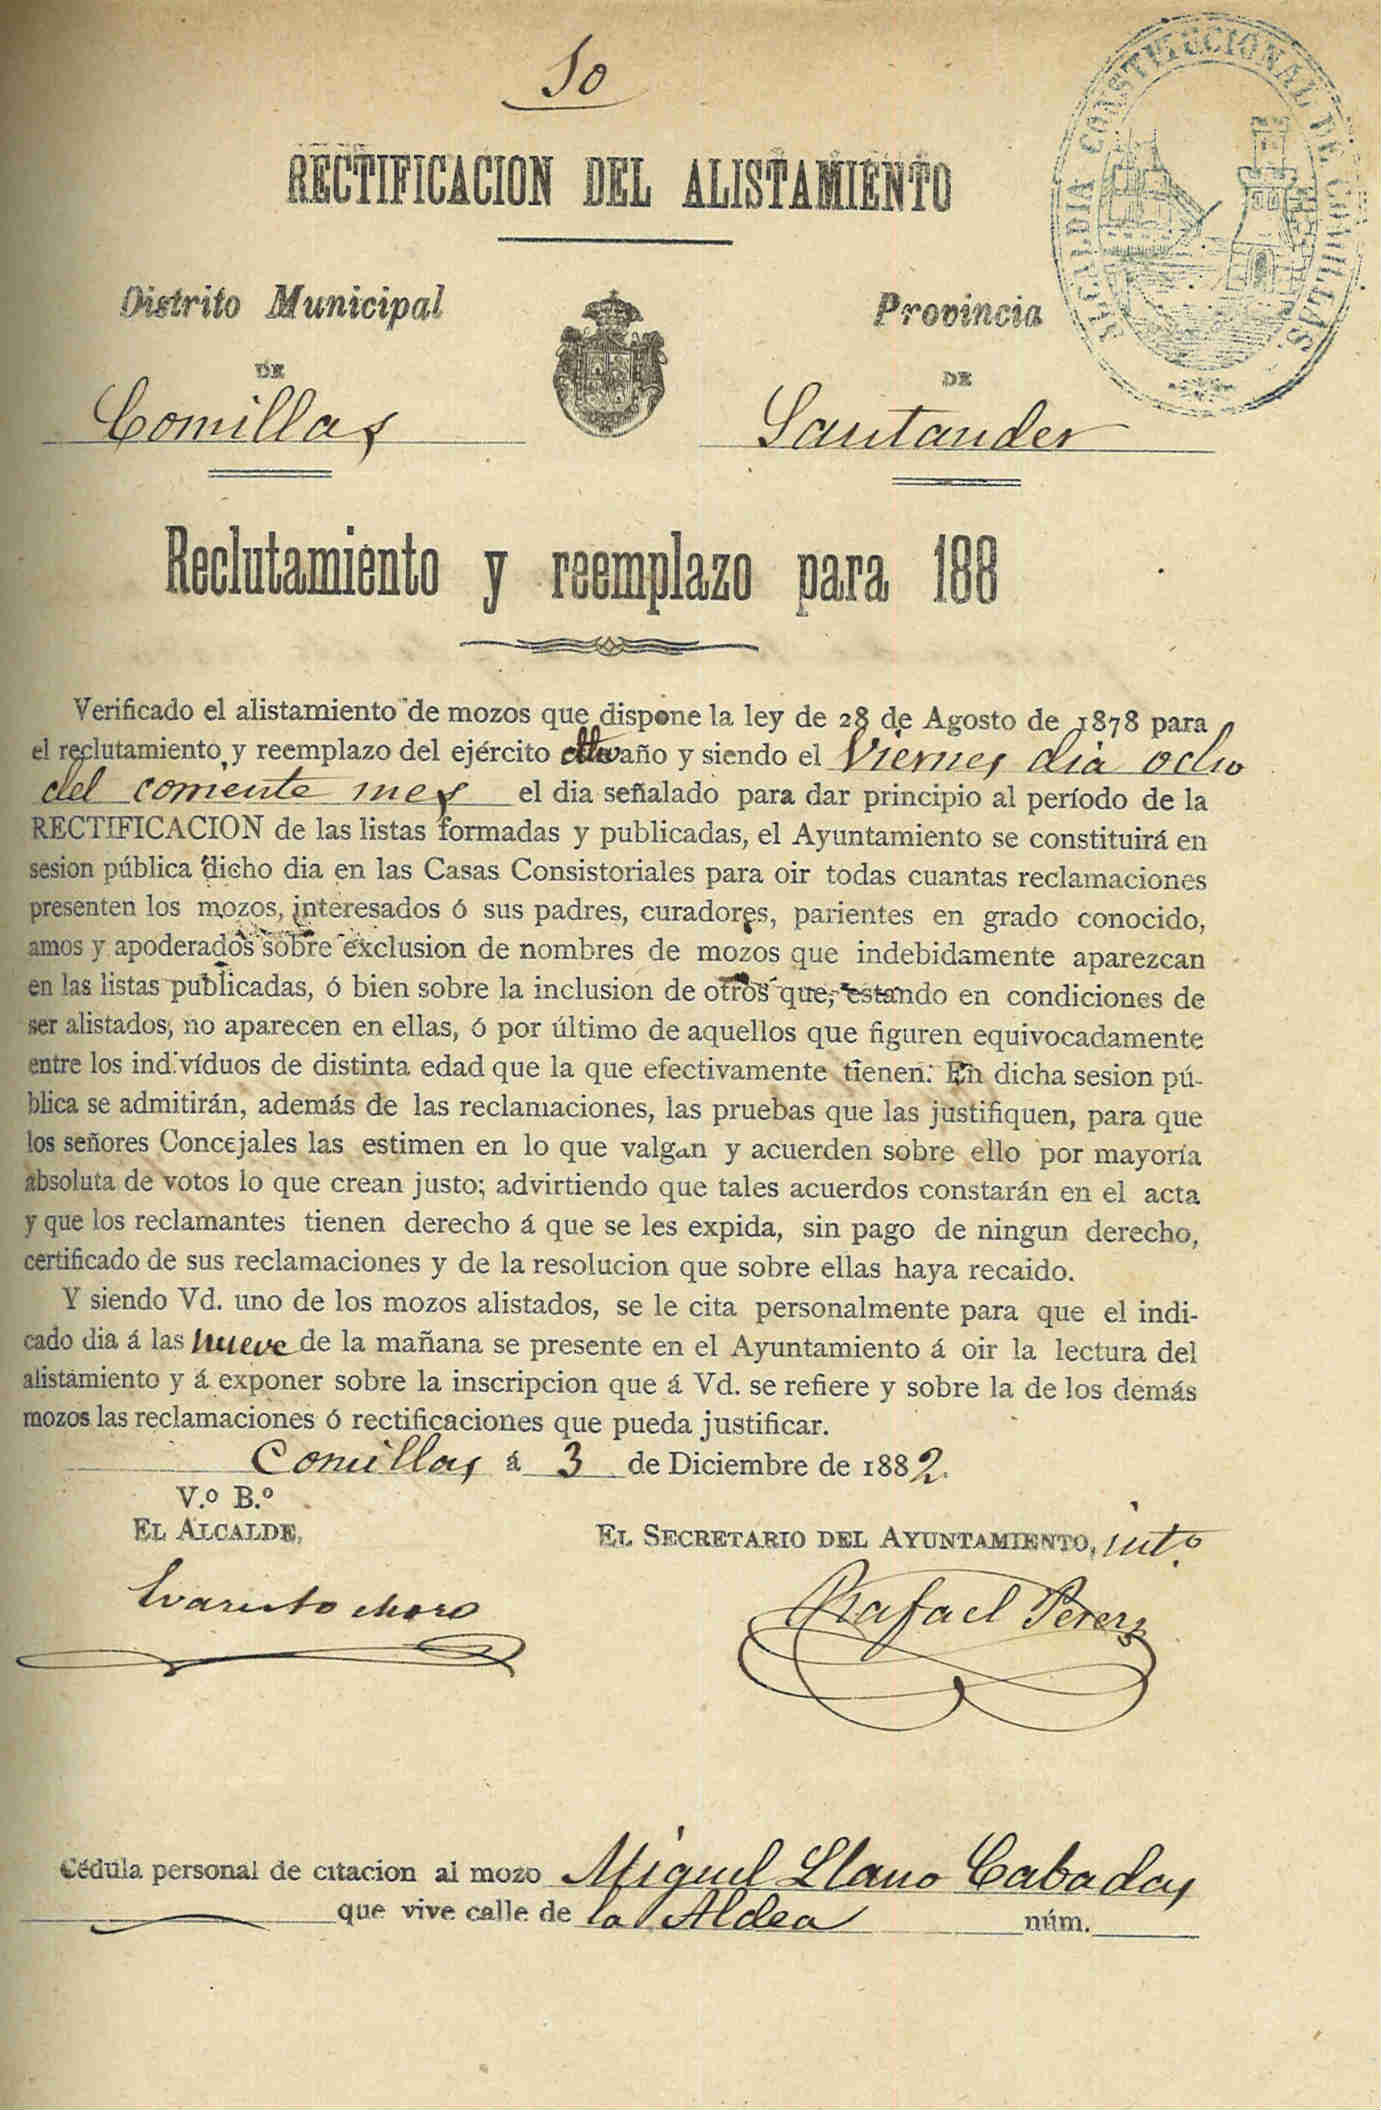 10
RECTIFICACION DEL ALISTAMIENTO
ALCALDIA CONSTITUCIONAL DE COMILLAS
Distrito Municipal
DE
Comillas
Provincia
DE
Santander
Reclutamiento y reemplazo para 188
Verificado el alistamiento de mozos que dispone la ley de 28 de Agosto de 1878 para
el reclutamiento y reemplazo del ejército año y siendo el Viernes dia ocho
del corriente mes el dia señalado para dar principio al período de la
RECTIFICACION de las listas formadas y publicadas, el Ayuntamiento se constituirá en
sesion pública dicho dia en las Casas Consistoriales para oir todas cuantas reclamaciones
presenten los mozos, interesados ó sus padres, curadores, parientes en grado conocido,
amos y apoderados sobre exclusion de nombres de mozos que indebidamente aparezcan
en las listas publicadas, ó bien sobre la inclusion de otros que, estando en condiciones de
ser alistados, no aparecen en ellas, ó por último de aquellos que figuren equivocadamente
entre los indivíduos de distinta edad que la que efectivamente tienen. En dicha sesion pú-
blica se admitirán, además de las reclamaciones, las pruebas que las justifiquen, para que
los señores Concejales las estimen en lo que valgan y acuerden sobre ello por mayoría
absoluta de votos lo que crean justo; advirtiendo que tales acuerdos constarán en el acta
y que los reclamantes tienen derecho á que se les expida, sin pago de ningun derecho,
certificado de sus reclamaciones y de la resolucion que sobre ellas haya recaido.
Y siendo Vd. uno de los mozos alistados, se le cita personalmente para que el indi-
cado dia á las nueve de la mañana se presente en el Ayuntamiento á oir la lectura del
alistamiento y á exponer sobre la inscripcion que á Vd. se refiere y sobre la de los demás
mozos las reclamaciones ó rectificaciones que pueda justificar.
Comillas á 3 de Diciembre de 1882.
V.º B.º
EL ALCALDE,
EL SECRETARIO DEL AYUNTAMIENTO, intº
Evaristo Moro
Rafael Perez
Cédula personal de citacion al mozo Miguel Llano Cabadas
que vive calle de la Aldea núm.